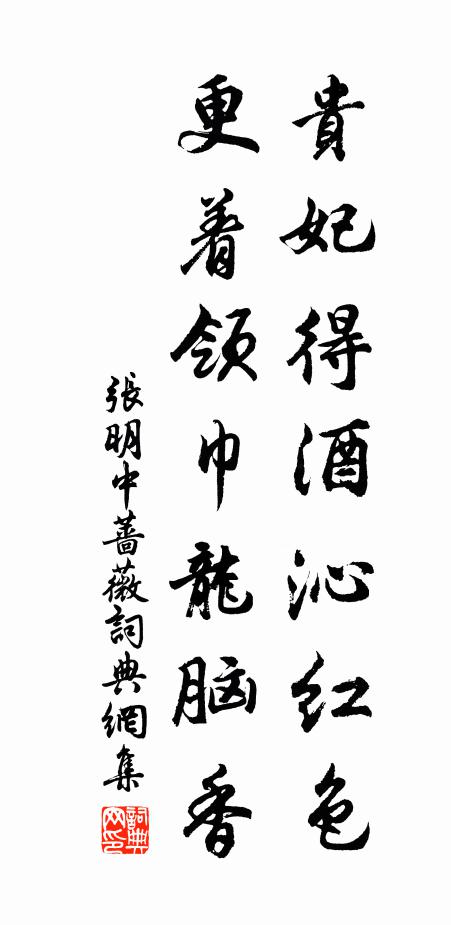 貴妃得酒沁红色
更着领巾龍脑香
張明中薔薇詞典網集
詞典网印